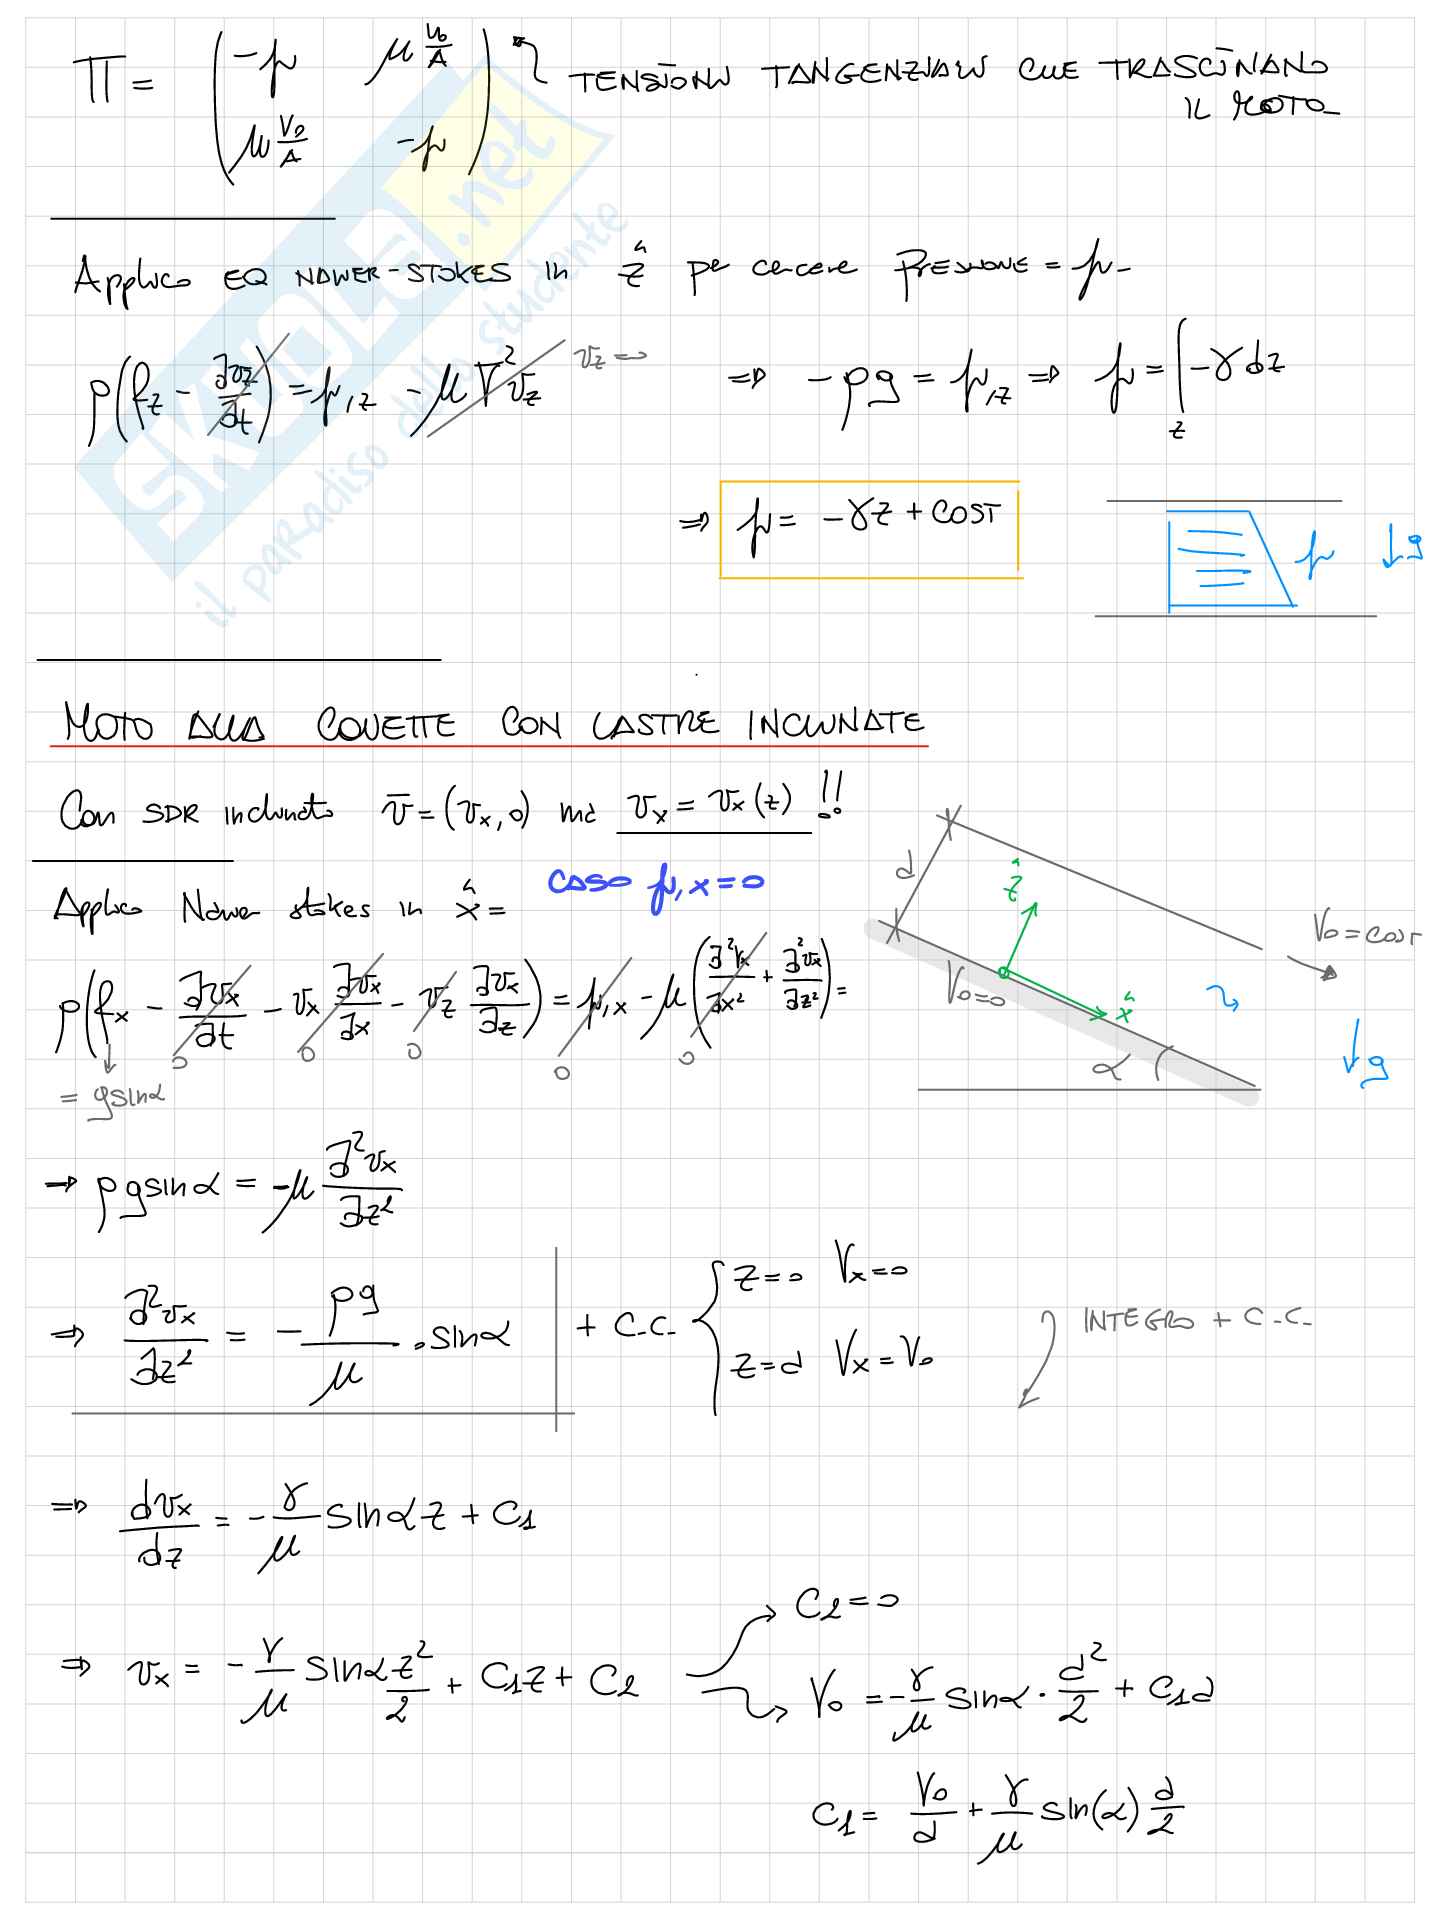 Π = ( -p   μ V₀/A
μ V₀/A   -p )
TENSIONI TANGENZIALI CHE TRASCINANO
IL MOTO
SKUOLA.net
il paradiso dello studente
Applico EQ NAVIER-STOKES in ẑ per cercare PRESSIONE = p
ρ(f_z - ∂v_z/∂t) = p,z - μ∇²v_z   v_z=0   ⇒ -ρg = p,z ⇒ p = ∫_z -γdz
⇒ p = -γz + COST
p ↓g
MOTO ALLA COUETTE CON LASTRE INCLINATE
Con SDR inclinato v̄ = (v_x, 0) ma v_x = v_x(z) !!
Applico Navier stokes in x̂ =   CASO p,x = 0
ρ(f_x - ∂v_x/∂t - v_x ∂v_x/∂x - v_z ∂v_x/∂z) = p,x - μ(∂²v_x/∂x² + ∂²v_x/∂z²) =
↓ 0 0 0 0 0
= gsinα
d ẑ x̂ V₀=0 V₀=COST α ↓g
→ ρgsinα = -μ ∂²v_x/∂z²
⇒ ∂²v_x/∂z² = - ρg/μ · sinα   + C.C. { z=0 V_x=0
z=d V_x=V₀
INTEGRO + C.C.
⇒ dv_x/dz = - γ/μ sinα z + C₁
⇒ v_x = - γ/μ sinα z²/2 + C₁z + C₂
→ C₂ = 0
→ V₀ = - γ/μ sinα · d²/2 + C₁d
C₁ = V₀/d + γ/μ sin(α) d/2